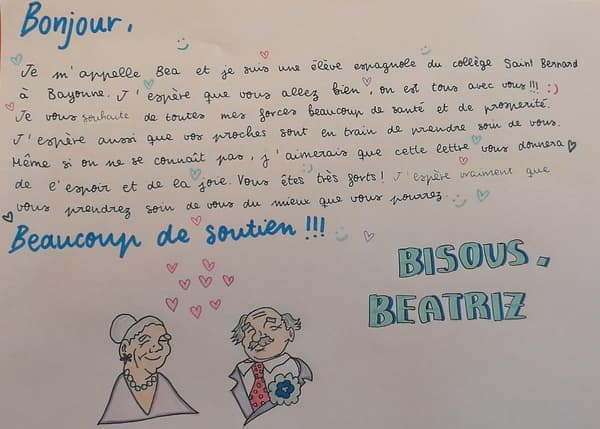 Bonjour,
Je m'appelle Bea et je suis une élève espagnole du collège Saint Bernard
à Bayonne. J'espère que vous allez bien, on est tous avec vous!!! :)
Je vous souhaite de toutes mes forces beaucoup de santé et de prosperité.
J'espère aussi que vos proches sont en train de prendre soin de vous.
Même si on ne se connaît pas, j'aimerais que cette lettre vous donnera
de l'espoir et de la joie. Vous êtes très forts! J'espère vraiment que
vous prendrez soin de vous du mieux que vous pourrez.
Beaucoup de soutien !!!
BISOUS,
BEATRIZ